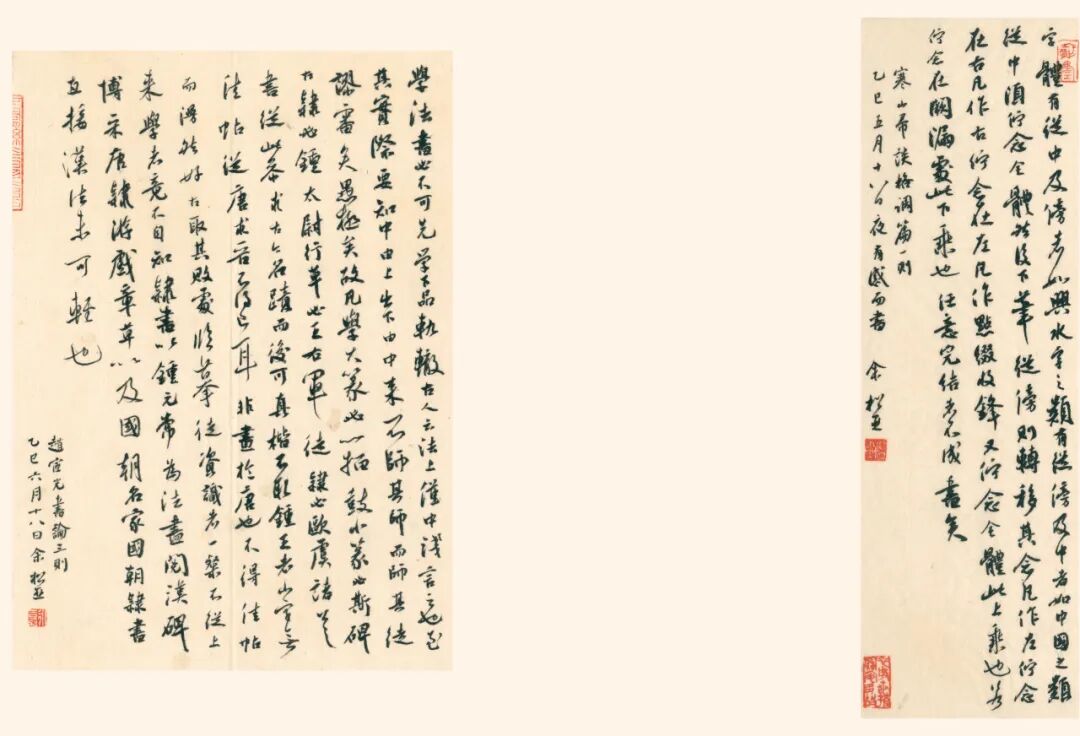 字體有從中及傍者如興水字之類有從傍及中者如中國之類
從中須佇念全體然後下筆從傍則轉移其念凡作左佇念
在右凡作右佇念在左凡作點綴收鋒又佇念全體此上乘也若
佇念在闕漏處此下乘也任意完結者不成畫矣
寒山帚談格調篇一則
乙巳五月十八日夜有感而書 余松
學法書必不可先學下品軌轍古人云法上僅中淺言之也至
其實際要知中由上出下由中來不師其師而師其徒
謬審矣愚極矣故凡學大篆必以猎鼓小篆必斯碑
古隸必鍾太尉行草必王右軍徒隸必歐虞諸公
書從此參求古今名蹟而後可真楷不取鍾王者以官書無
法帖從唐求晉不得已耳非畫於唐也不得佳帖
而漫然好古取其敗處臨摹徒資識者一粲不從上
來學者竟不自知隸書以鍾元常為法盡閱漢碑
博采唐隸游戲章草以及國朝名家國朝隸書
直接漢法未可輕也
趙宦光書論三則
乙巳六月十八日余松